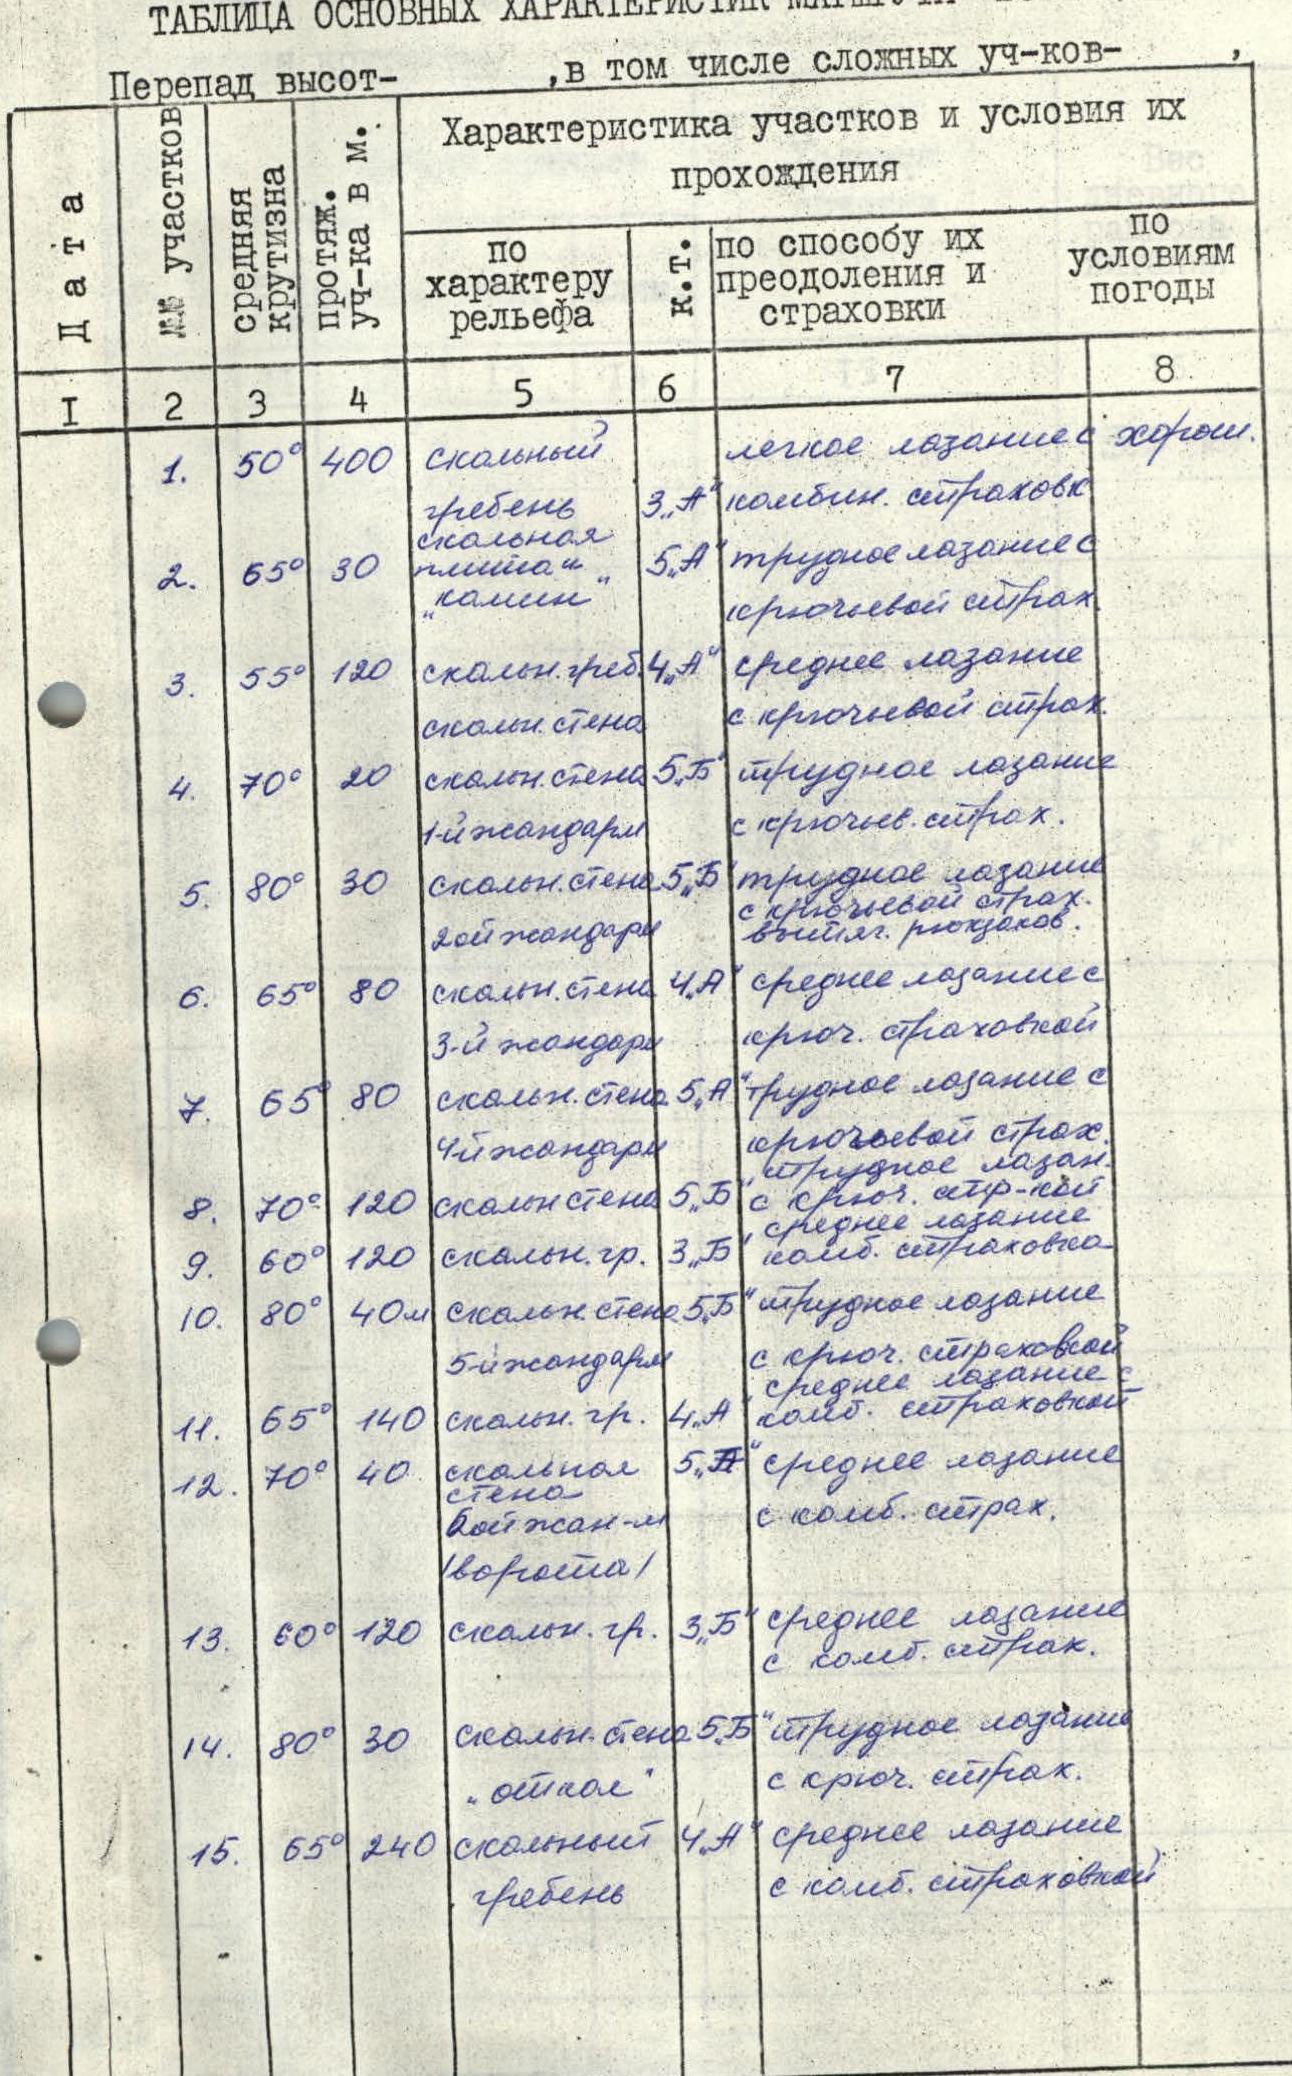 ТАБЛИЦА ОСНОВНЫХ ХАРАКТЕРИСТИК
Перепад высот- ,в том числе сложных уч-ков- ,
Дата
№№ участков
средняя
крутизна
протяж.
уч-ка в м.
Характеристика участков и условия их
прохождения
по
характеру
рельефа
к.т.
по способу их
преодоления и
страховки
по
условиям
погоды
I 2 3 4 5 6 7 8
1. 50° 400 скальный легкое лазание с хорош.
гребень 3„А“ комбин. страховк
скальная
2. 65° 30 плита и 5„А“ трудное лазание с
„камин“ крючьевой страх.
3. 55° 120 скальн. греб. 4„А“ среднее лазание
скальн. стена с крючьевой страх.
4. 70° 20 скальн. стена 5„Б“ трудное лазание
1-й жандарм с крючьев. страх.
5. 80° 30 скальн. стена 5„Б“ трудное лазание
с крючьевой страх.
2ой жандарм вытяг. рюкзаков.
6. 65° 80 скальн. стена 4„А“ среднее лазание с
3-й жандарм крюч. страховкой
7. 65° 80 скальн. стена 5„А“ трудное лазание с
4-й жандарм крючьевой страх.
трудное лазан.
8. 70° 120 скальн стена 5„Б“ с крюч. стр-кой
среднее лазание
9. 60° 120 скальн. гр. 3„Б“ комб. страховка
10. 80° 40м скальн. стена 5„Б“ трудное лазание
5-й жандарм с крюч. страховкой
среднее лазание с
11. 65° 140 скальн. гр. 4„А“ комб. страховкой
12. 70° 40 скальная 5„А“ среднее лазание
стена
6ой жан-м с комб. страх.
/ворота/
13. 60° 120 скальн. гр. 3„Б“ среднее лазание
с комб. страх.
14. 80° 30 скальн. стена 5„Б“ трудное лазание
„откол“ с крюч. страх.
15. 65° 240 скальный 4„А“ среднее лазание
гребень с комб. страховкой